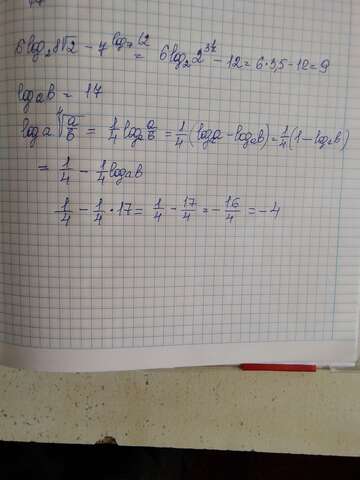 6log₂8√2 - 7^log₇12 = 6log₂2^3½ - 12 = 6·3,5 - 12 = 9
logₐb = 17
logₐ ⁴√(a/b) = 1/4 logₐ a/b = 1/4 (logₐa - logₐb) = 1/4 (1 - logₐb)
= 1/4 - 1/4 logₐb
1/4 - 1/4 · 17 = 1/4 - 17/4 = - 16/4 = - 4